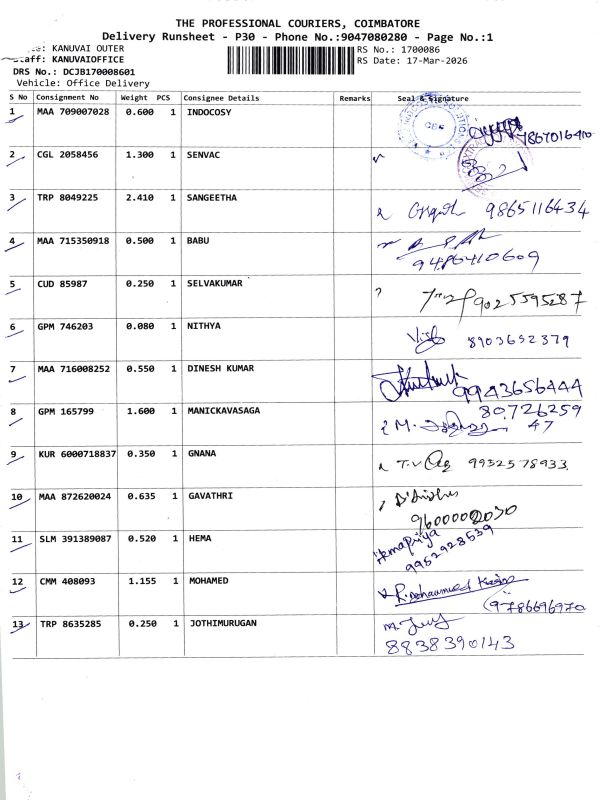 THE PROFESSIONAL COURIERS, COIMBATORE
Delivery Runsheet - P30 - Phone No.:9047080280 - Page No.:1
KANUVAI OUTER RS No.: 1700086
Staff: KANUVAIOFFICE RS Date: 17-Mar-2026
DRS No.: DCJB170008601
Vehicle: Office Delivery
S No Consignment No Weight PCS Consignee Details Remarks Seal & Signature
1 MAA 709007028 0.600 1 INDOCOSY
2 CGL 2058456 1.300 1 SENVAC
3 TRP 8049225 2.410 1 SANGEETHA 9865116434
4 MAA 715350918 0.500 1 BABU
9486410609
5 CUD 85987 0.250 1 SELVAKUMAR 9025595287
6 GPM 746203 0.080 1 NITHYA 8903652379
7 MAA 716008252 0.550 1 DINESH KUMAR 9943656444
8 GPM 165799 1.600 1 MANICKAVASAGA 80726259
47
9 KUR 6000718837 0.350 1 GNANA 9932578933
10 MAA 872620024 0.635 1 GAVATHRI
9600002030
11 SLM 391389087 0.520 1 HEMA Hemapriya
9952928539
12 CMM 408093 1.155 1 MOHAMED
9786696970
13 TRP 8635285 0.250 1 JOTHIMURUGAN
8838390143